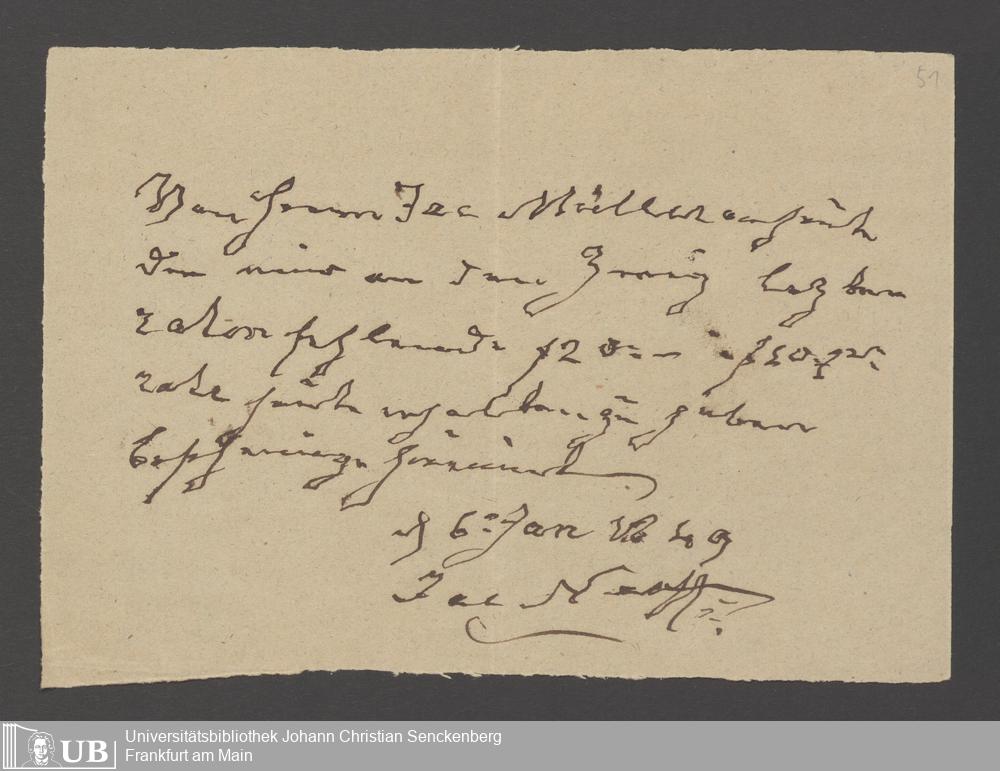 51
Von Herrn Jac Müller heute
die mir an den Zwey letzten
raten fehlende f 20
rate heute erhalten zu haben
bescheinige hiermit
d 6n Jan 1849
Jac
UB Universitätsbibliothek Johann Christian Senckenberg
Frankfurt am Main